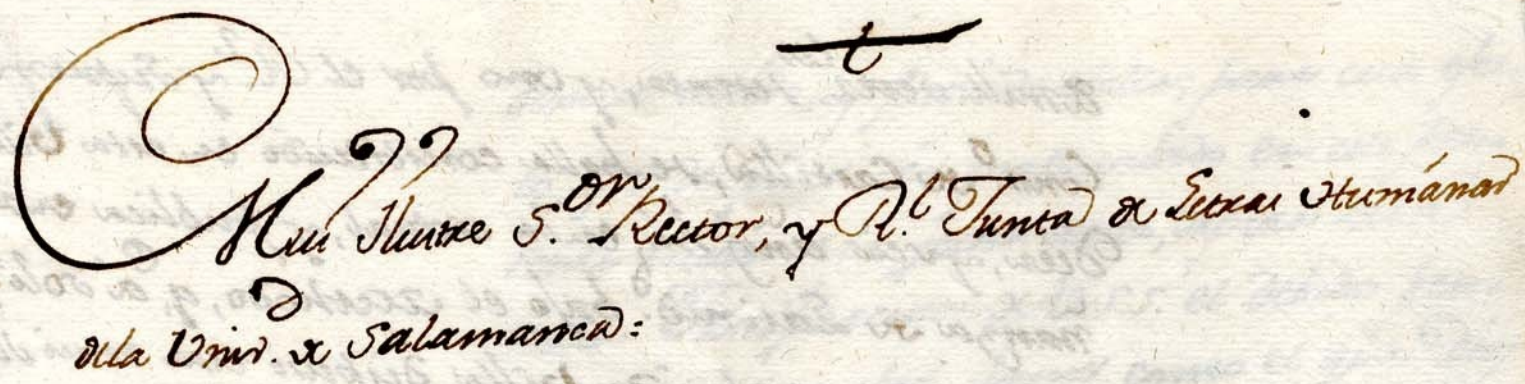 Mui Ilustre S.or Rector, y R.l Junta de Letras Humánas
dela Univ.d de Salamanca: